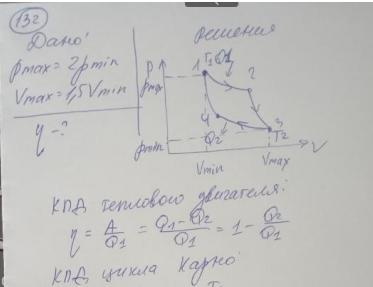 132
Дано:
pmax = 2pmin
Vmax = 1,5Vmin
η - ?
Решения
P
pmax
pmin
1 T1 Q1
2
3
T2
4
Q2
Vmin
Vmax
V
КПД теплового двигателя:
η = A/Q1 = Q1 - Q2/Q1 = 1 - Q2/Q1
КПД цикла Карно: